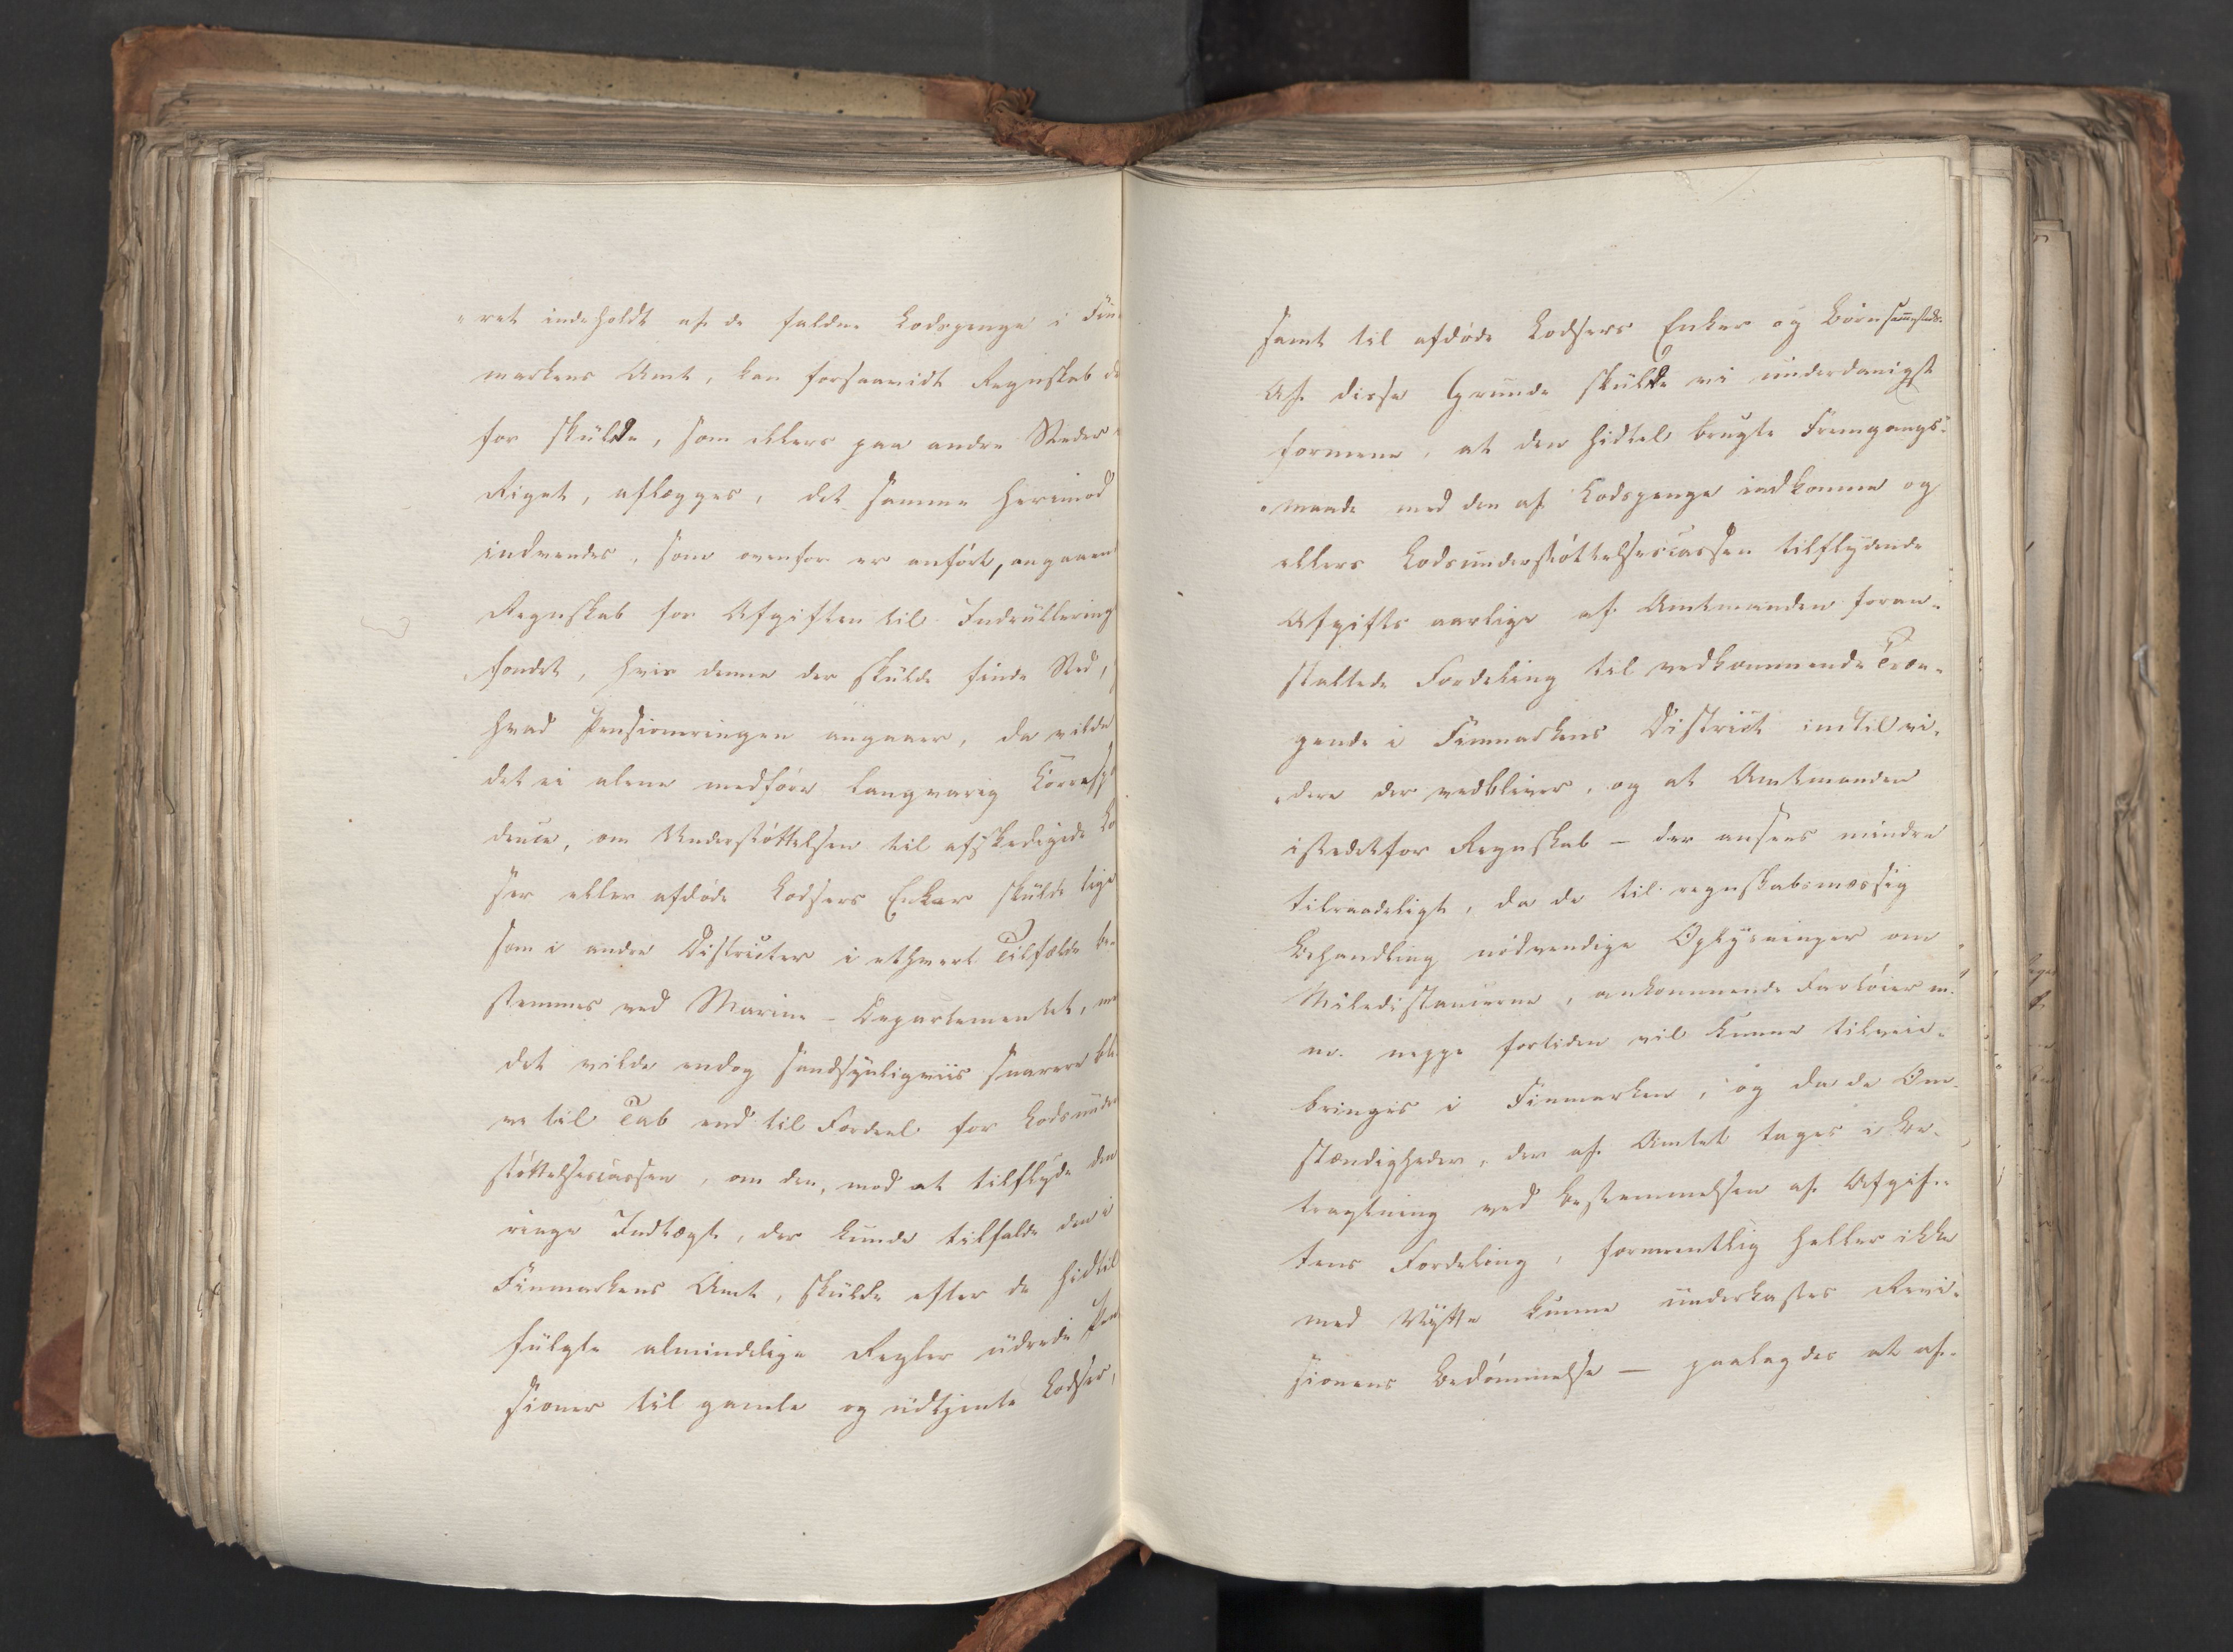 "ret indeholdt af de faldne Lodspenge i Fin-
markens Amt, kan forsaavidt Regnskab de
for skulde, som ellers paa andre Steder
Riget, aflægges, det samme herimod
indvendes, som ovenfor er anført, angaaen
Regnskab for Afgiften til Indrullering
fondet, hvis denne der skulde finde Sted,
hvad Pensioneringen angaaer, da vilde
det ei alene medføre langvarig Corresp
dence, om Understøttelsen til afskedigede Lo
ser eller afdøde Lodsers Enker skulde lige
som i andre Districter i ethvert Tilfælde be-
stemmes ved Marine-Departementet, me
det vilde endog sandsynligviis snarere bli
ve til Tab end til Fordeel for Lodsunder
støttelsescassen, om den, mod at tilflyde den
ringe Indtægt, der kunde tilfalde den i
Finmarkens Amt, skulde efter de hidtil
fulgte almindelige Regler udrede Pen
sioner til gamle og udtjente Lodser,
samt til afdøde Lodsers Enker og Børn sammesteds.
Af disse Grunde skulde vi underdanigst
formene, at den hidtil brugte Fremgangs-
"maade med den af Lodspenge indkomne og
ellers Lodsunderstøttelsescassen tilflydende
Afgifts aarlige af Amtmanden foran-
staltede Fordeling til vedkommende Træn-
gende i Finmarkens District indtil vi-
"dere der vedbliver, og at Amtmanden
istedetfor Regnskab – der ansees mindre
tilraadeligt, da de til regnskabsmæssig
Behandling nødvendige Oplysninger om
Miledistancerne, ankommende Fartøier m.
m. neppe fortiden vil kunne tilveie-
bringes i Finmarken, og da de Om-
stændigheder, der af Amtet tages i Be-
tragtning ved Bestemmelsen af Afgif-
tens Fordeling, formeentlig heller ikke
med Nytte kunne underkastes Revi-
sionens Bedømmelse — paalægdes at af-